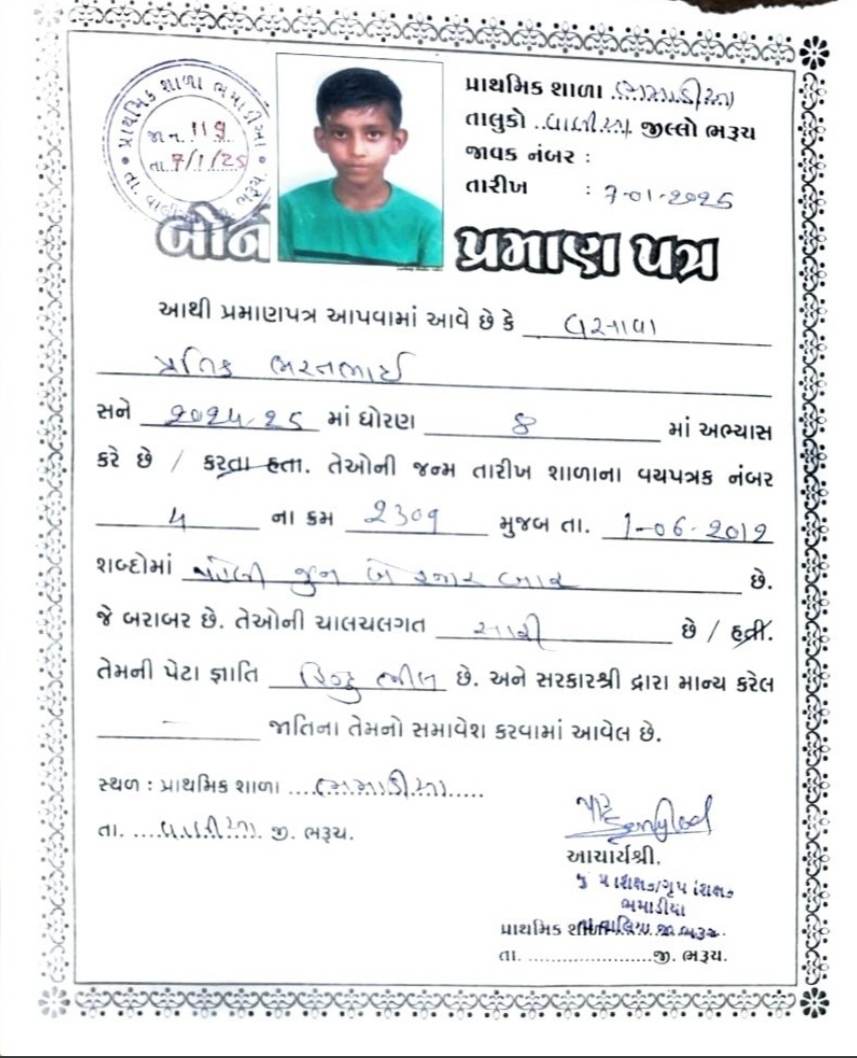 પ્રાથમિક શાળા ભમાડીઆ
જા.ન. 119
તા. 7/1/25
તા. વાલીઆ જી. ભરૂચ.
પ્રાથમિક શાળા ભમાડીઆ
તાલુકો વાલીઆ જીલ્લો ભરૂચ
જાવક નંબર :
તારીખ : 7-01-2025
બોન પ્રમાણ પત્ર
આથી પ્રમાણપત્ર આપવામાં આવે છે કે વસાવા
પ્રતિક ભરતભાઈ
સને ૨૦૨૪-૨૫ માં ધોરણ ૮ માં અભ્યાસ
કરે છે / કરતા હતા. તેઓની જન્મ તારીખ શાળાના વયપત્રક નંબર
૫ ના ક્રમ ૨૩૦૧ મુજબ તા. 1-06-2012
શબ્દોમાં પહેલી જુન બે હજાર બાર છે.
જે બરાબર છે. તેઓની ચાલચલગત સારી છે / હતી.
તેમની પેટા જ્ઞાતિ હિન્દુ ભીલ છે. અને સરકારશ્રી દ્વારા માન્ય કરેલ
— જાતિના તેમનો સમાવેશ કરવામાં આવેલ છે.
સ્થળ : પ્રાથમિક શાળા ....ભમાડીઆ.....
તા. ....વાલીઆ. જી. ભરૂચ.
આચાર્યશ્રી.
ભમાડીયા
પ્રાથમિક શાળા
તા. વાલિયા જી. ભરૂચ.
તા. ......................જી. ભરૂચ.